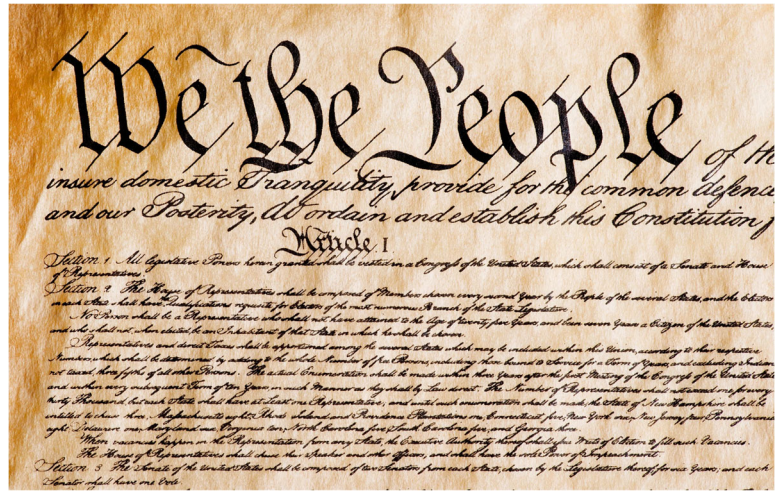 We the People of th
insure domestic Tranquility, provide for the common defence
and our Posterity, do ordain and establish this Constitution f
Article. I
Section. 1. All legislative Powers herein granted shall be vested in a Congress of the United States, which shall consist of a Senate and House
of Representatives.
Section. 2. The House of Representatives shall be composed of Members chosen every second Year by the People of the several States, and the Electors
in each State shall have Qualifications requisite for Electors of the most numerous Branch of the State Legislature.
No Person shall be a Representative who shall not have attained to the Age of twenty five Years, and been seven Years a Citizen of the United States
and who shall not, when elected, be an Inhabitant of that State in which he shall be chosen.
Representatives and direct Taxes shall be apportioned among the several States which may be included within this Union, according to their respective
Numbers, which shall be determined by adding to the whole Number of free Persons, including those bound to Service for a Term of Years, and excluding Indians
not taxed, three fifths of all other Persons. The actual Enumeration shall be made within three Years after the first Meeting of the Congress of the United States
and within every subsequent Term of ten Years, in such Manner as they shall by Law direct. The Number of Representatives shall not exceed one for every
thirty Thousand, but each State shall have at Least one Representative; and until such enumeration shall be made, the State of New Hampshire shall be
entitled to chuse three, Massachusetts eight, Rhode Island and Providence Plantations one, Connecticut five, New York six, New Jersey four, Pennsylvania
eight, Delaware one, Maryland six, Virginia ten, North Carolina five, South Carolina five, and Georgia three.
When vacancies happen in the Representation from any State, the Executive Authority thereof shall issue Writs of Election to fill such Vacancies.
The House of Representatives shall chuse their Speaker and other Officers; and shall have the sole Power of Impeachment.
Section. 3. The Senate of the United States shall be composed of two Senators from each State, chosen by the Legislature thereof, for six Years; and each
Senator shall have one Vote.